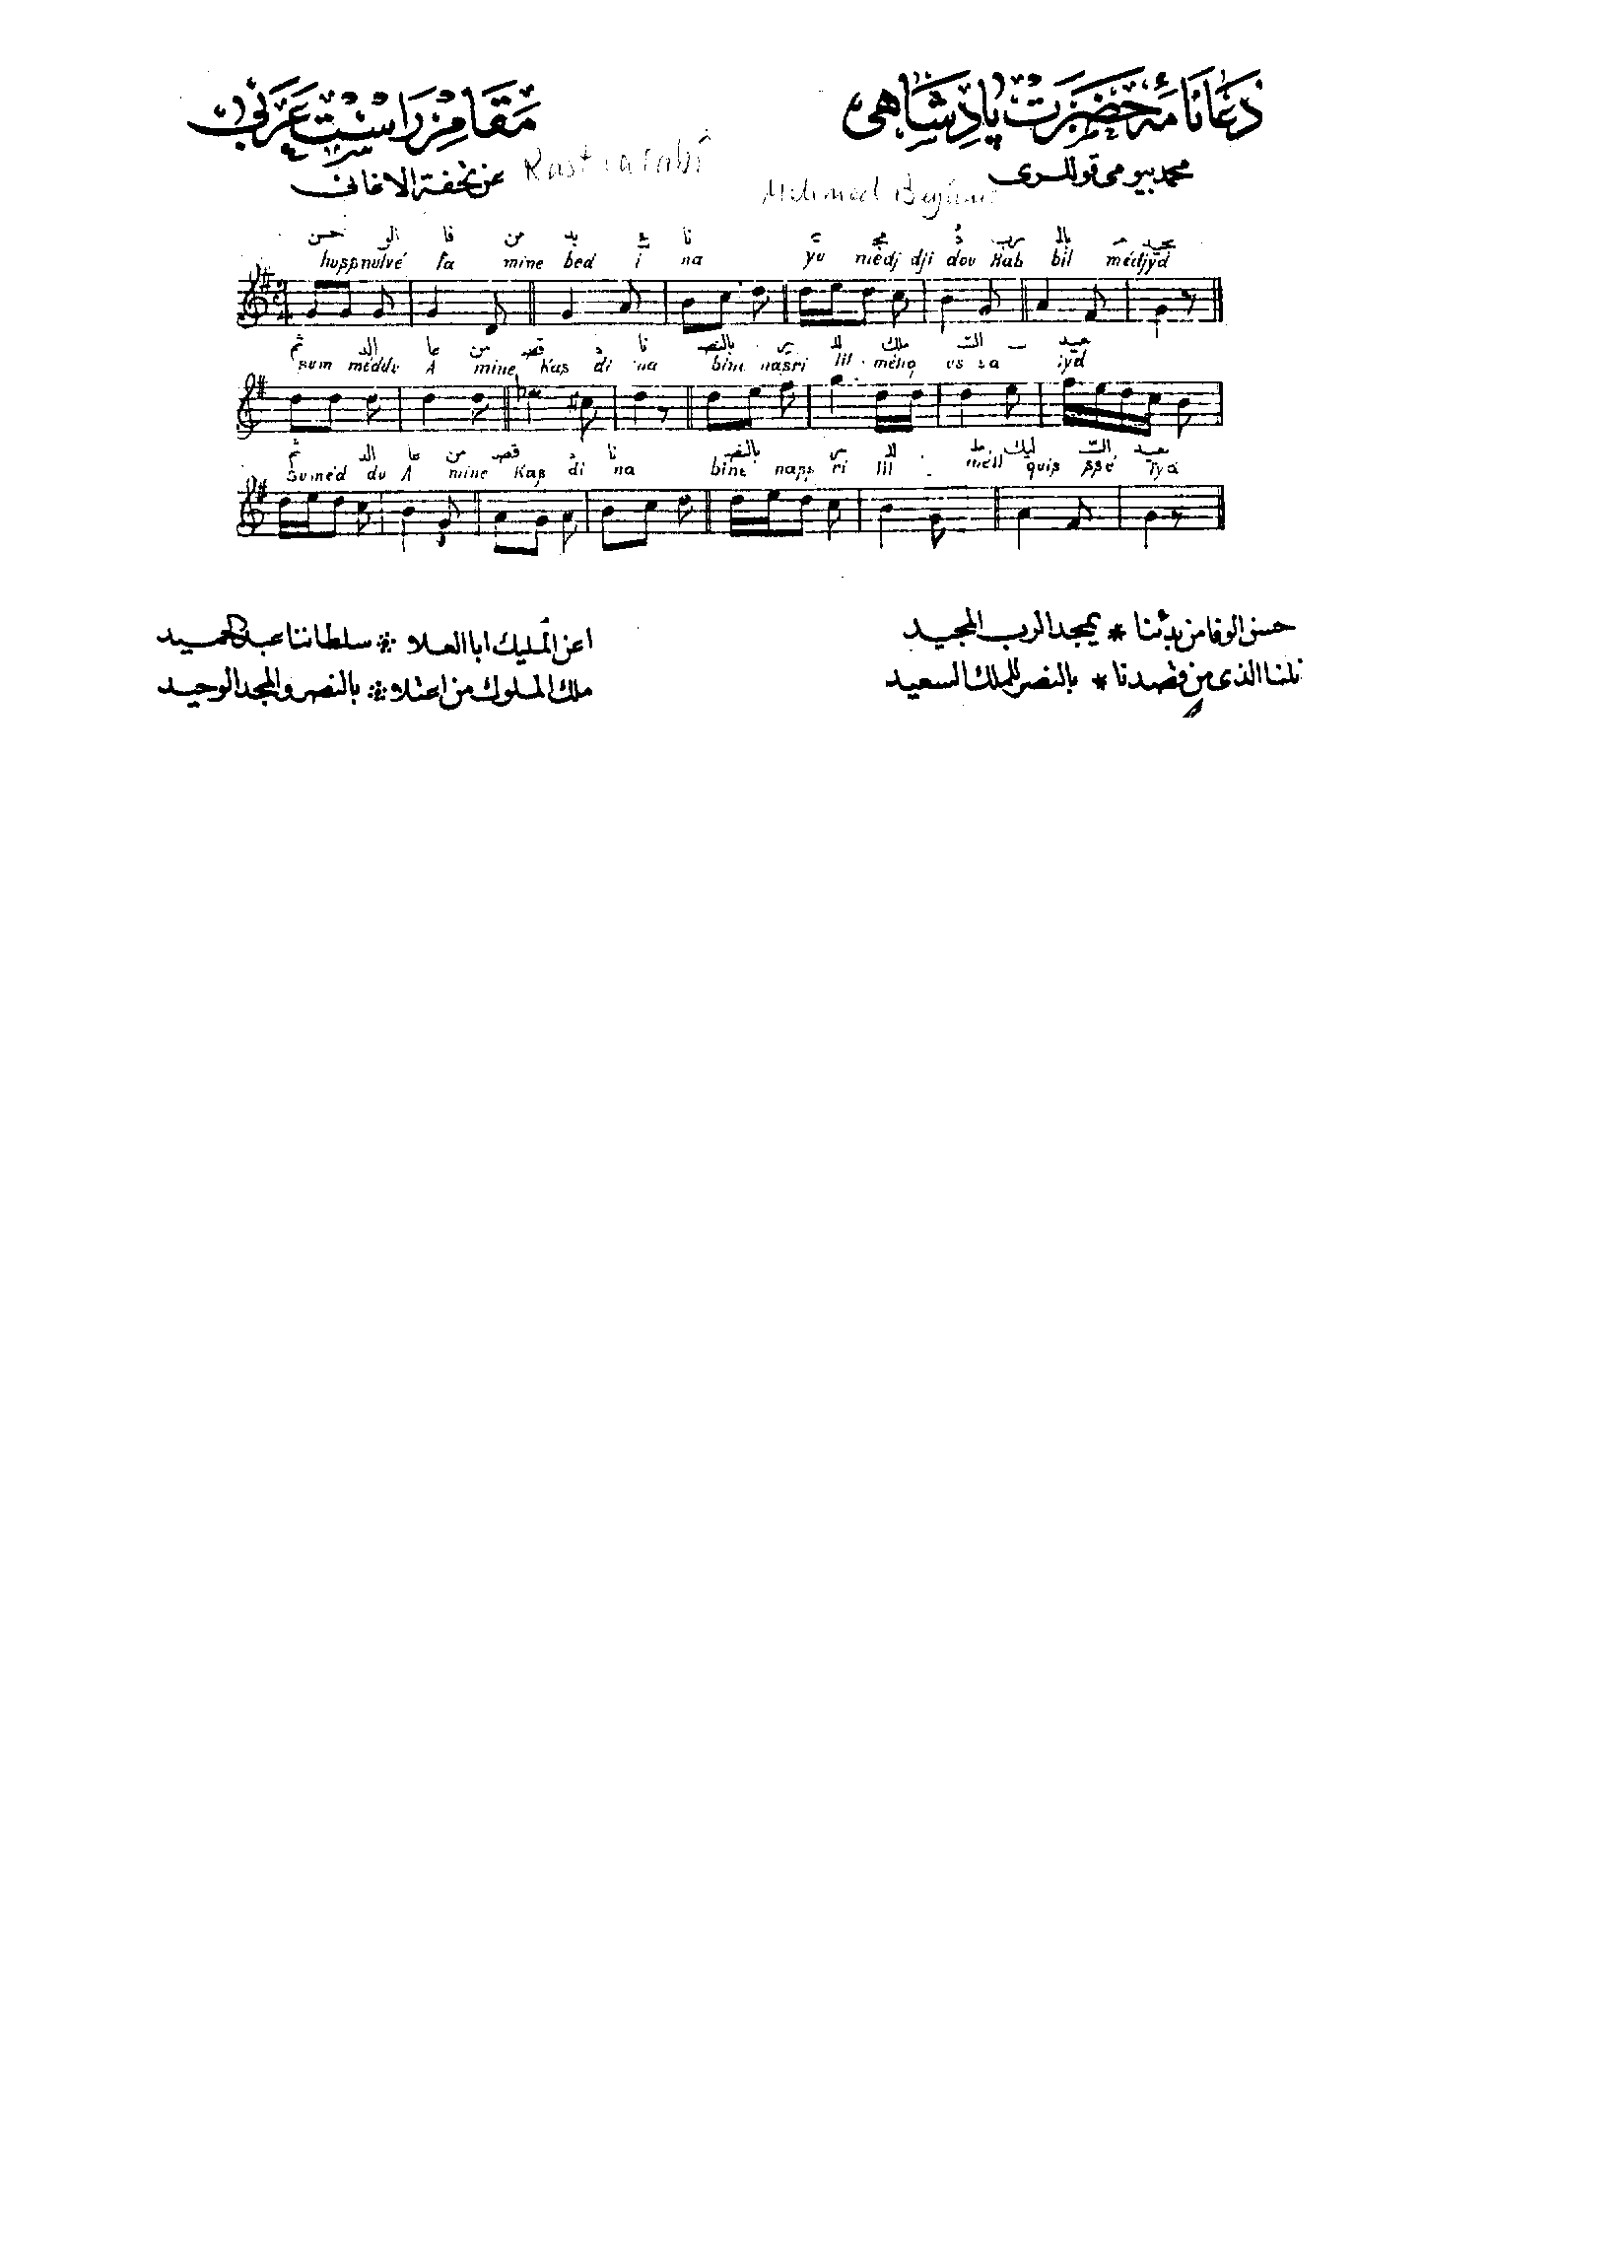 دعانامهٔ حضرت پادشاهی
مقام راست عربی
محمد بیومی قوللری
Mehmed Beyûmî
Rast-ı arabî
عن تحفة الاغانی
حسن الو فا من بد ء نا مجد رب بالـ مجيد
hussnulvé fa mine bed i na yu médj dji dou Rab bil médjyd
ثم الد عا من قصد نا بالنصـ ری للـ ملك السـ عيد
sum méddu A mine Kas di na bine nasri lil méliq us sa iyd
ثم الد عا من قصد نا بالنصـ ری للـ مليك السـ عيد
suméd du A mine Kas di na bine nass ri lil méli quis ssé iyd
حسن الوفا من بدئنا * بمجد الرب المجيد
نلنا الذى من قصدنا * بالنصر للملك السعيد
اعز المليك ابا العلا * سلطاننا عبد الحميد
ملك الملوك من اعتلاه * بالنصر والمجد الوحيد